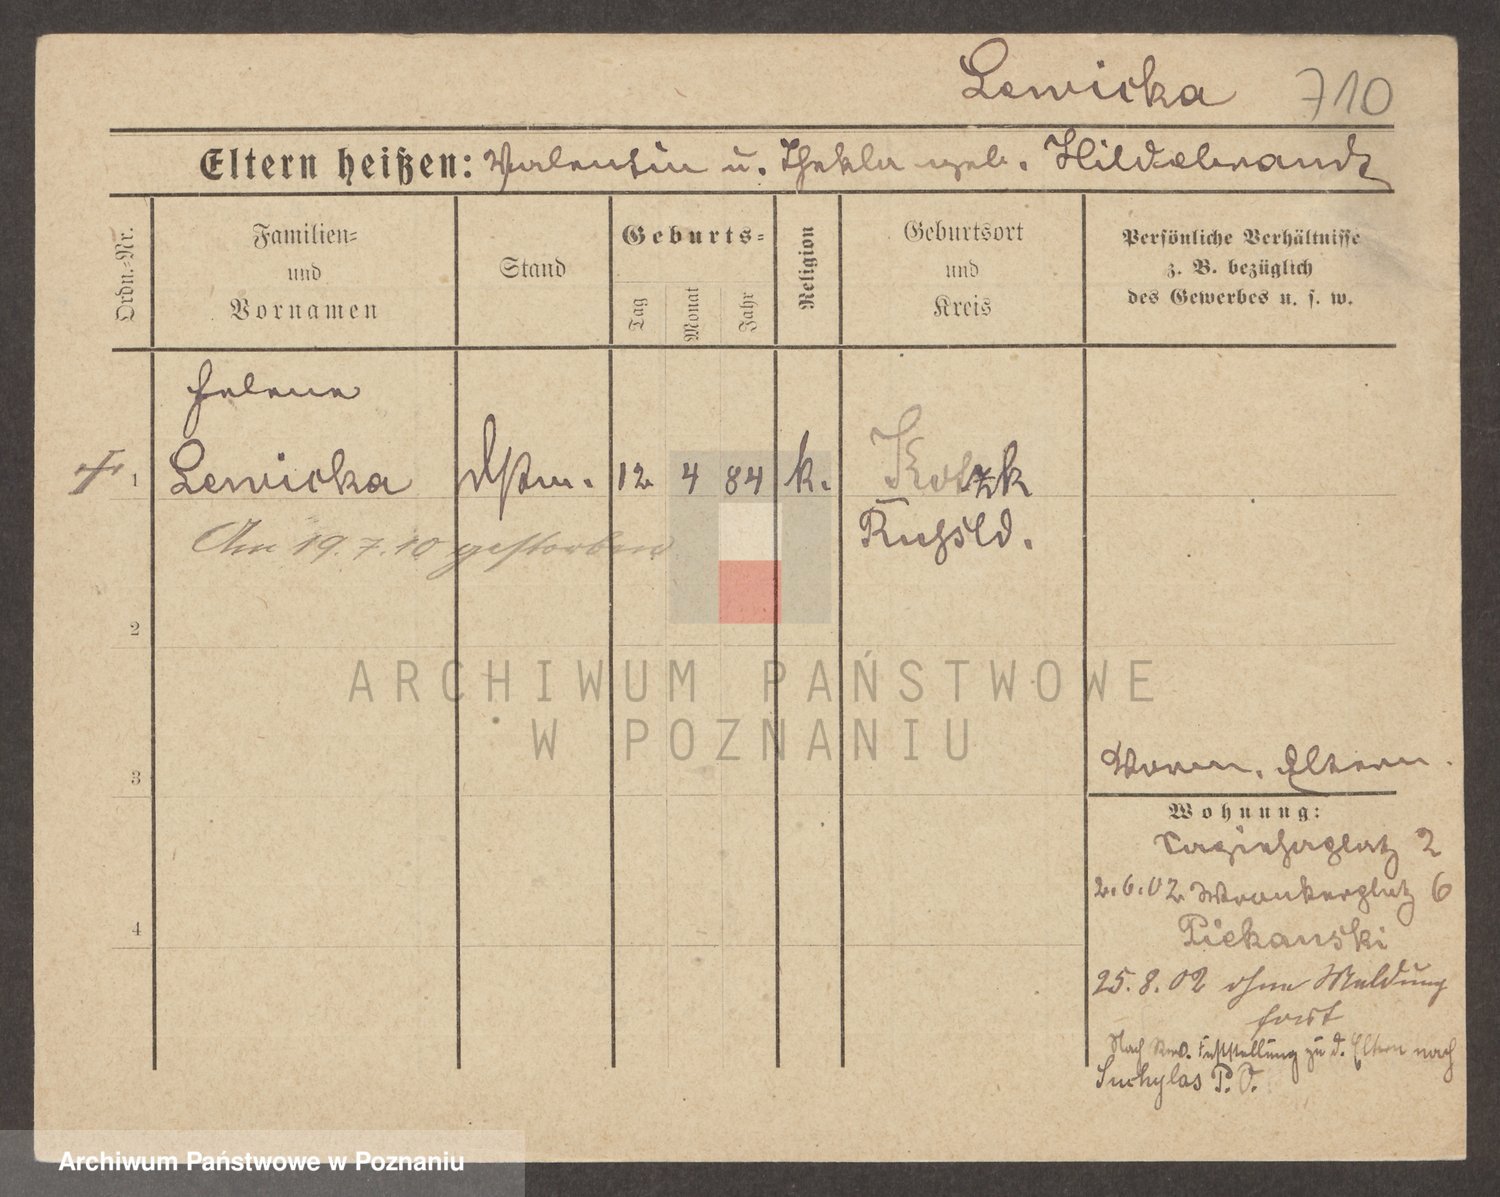 Lewicka 710
Eltern heißen: Valentin u. Thekla geb. Hildebrandt
Ordn.-Nr.
Familien- und Vornamen
Stand
Geburts-
Tag
Monat
Jahr
Religion
Geburtsort und Kreis
Persönliche Verhältnisse
z. B. bezüglich
des Gewerbes u. s. w.
Helene
1 Lewicka Dstm. 12 4 84 k. Kotzk
Rußld.
Am 19.7.10 gestorben
2
3
4
Eltern.
Wohnung:
2
2.6.02 Wronkerplatz 6
Piekanski
25.8.02 ohne Meldung
fort
Nach Feststellung zu d. Eltern nach
Suchylas P. O.
ARCHIWUM PAŃSTWOWE
W POZNANIU
Archiwum Państwowe w Poznaniu